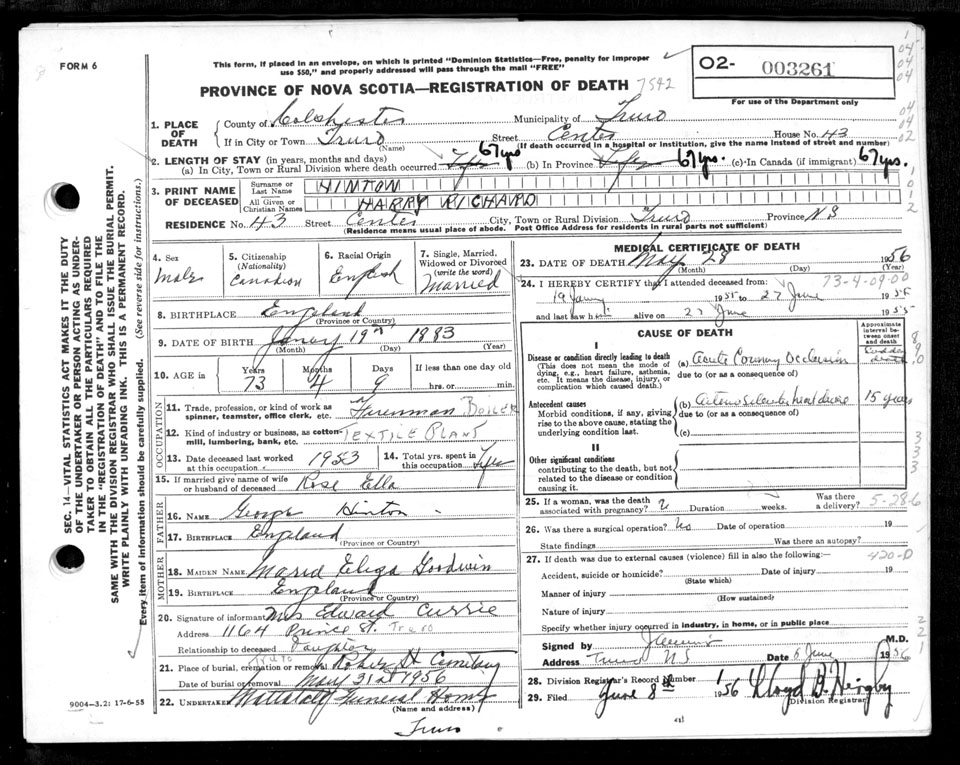 FORM 6
This form, if placed in an envelope, on which is printed "Dominion Statistics—Free, penalty for improper
use $50," and properly addressed will pass through the mail "FREE"
O2- 003261
For use of the Department only
PROVINCE OF NOVA SCOTIA—REGISTRATION OF DEATH 7542
1. PLACE OF DEATH
County of Colchester Municipality of Truro
If in City or Town Truro Street Center House No. 43
(Name) (If death occurred in a hospital or institution, give the name instead of street and number)
2. LENGTH OF STAY (in years, months and days)
(a) In City, Town or Rural Division where death occurred 67 yrs (b) In Province 67 yrs. (c) In Canada (if immigrant) 67 yrs.
3. PRINT NAME OF DECEASED
Surname or Last Name HINTON
All Given or Christian Names HARRY RICHARD
RESIDENCE No. 43 Street Center City, Town or Rural Division Truro Province N S
(Residence means usual place of abode. Post Office Address for residents in rural parts not sufficient)
4. Sex Male
5. Citizenship (Nationality) Canadian
6. Racial Origin English
7. Single, Married, Widowed or Divorced (write the word) Married
8. BIRTHPLACE England
(Province or Country)
9. DATE OF BIRTH 19 1883
(Month) (Day) (Year)
10. AGE in Years 73 Months 4 Days 9 If less than one day old hrs. or min.
OCCUPATION
11. Trade, profession, or kind of work as spinner, teamster, office clerk, etc. Fireman Boiler
12. Kind of industry or business, as cotton-mill, lumbering, bank, etc. TEXTILE PLANT
13. Date deceased last worked at this occupation 1953
14. Total yrs. spent in this occupation Life
15. If married give name of wife or husband of deceased Rose Ella
FATHER
16. NAME George Hinton
17. BIRTHPLACE England
(Province or Country)
MOTHER
18. MAIDEN NAME Eliza Goodwin
19. BIRTHPLACE England
(Province or Country)
20. Signature of informant Mrs Edward Currie
Address 1164 Prince St. Truro
Relationship to deceased Daughter
21. Place of burial, cremation or removal Truro Robie St Cemetery
Date of burial or removal May 31st 1956
22. UNDERTAKER Funeral Home
(Name and address)
Truro
9004-3.2: 17-6-55
MEDICAL CERTIFICATE OF DEATH
23. DATE OF DEATH May 28 1956
(Month) (Day) (Year)
73-4-09-00
24. I HEREBY CERTIFY that I attended deceased from:
19 1955 to 27 June 19
and last saw h alive on 27 June 1955
CAUSE OF DEATH
Approximate interval between onset and death
I
Disease or condition directly leading to death
(This does not mean the mode of dying, e.g., heart failure, asthenia, etc. It means the disease, injury, or complication which caused death.)
(a) Acute Coronary Occlusion
due to (or as a consequence of)
Antecedent causes
Morbid conditions, if any, giving rise to the above cause, stating the underlying condition last.
(b) heart disease 15 years
due to (or as a consequence of)
(c)
II
Other significant conditions
contributing to the death, but not related to the disease or condition causing it.
25. If a woman, was the death associated with pregnancy? Duration weeks. Was there a delivery? 5-286
26. Was there a surgical operation? No Date of operation 19
State findings Was there an autopsy?
27. If death was due to external causes (violence) fill in also the following:— 420-0
Accident, suicide or homicide? Date of injury 19
(State which)
Manner of injury
(How sustained)
Nature of injury
Specify whether injury occurred in industry, in home, or in public place
Signed by M.D.
Address Truro N S Date 6 June 1956
28. Division Registrar's Record Number
29. Filed June 8th 1956 Lloyd B.
Division Registrar
SEC. 14—VITAL STATISTICS ACT MAKES IT THE DUTY
OF THE UNDERTAKER OR PERSON ACTING AS UNDER-
TAKER TO OBTAIN ALL THE PARTICULARS REQUIRED
IN THE "REGISTRATION OF DEATH" AND TO FILE THE
SAME WITH THE DIVISION REGISTRAR WHO SHALL ISSUE THE BURIAL PERMIT.
WRITE PLAINLY WITH UNFADING INK. THIS IS A PERMANENT RECORD.
Every item of information should be carefully supplied. (See reverse side for instructions.)